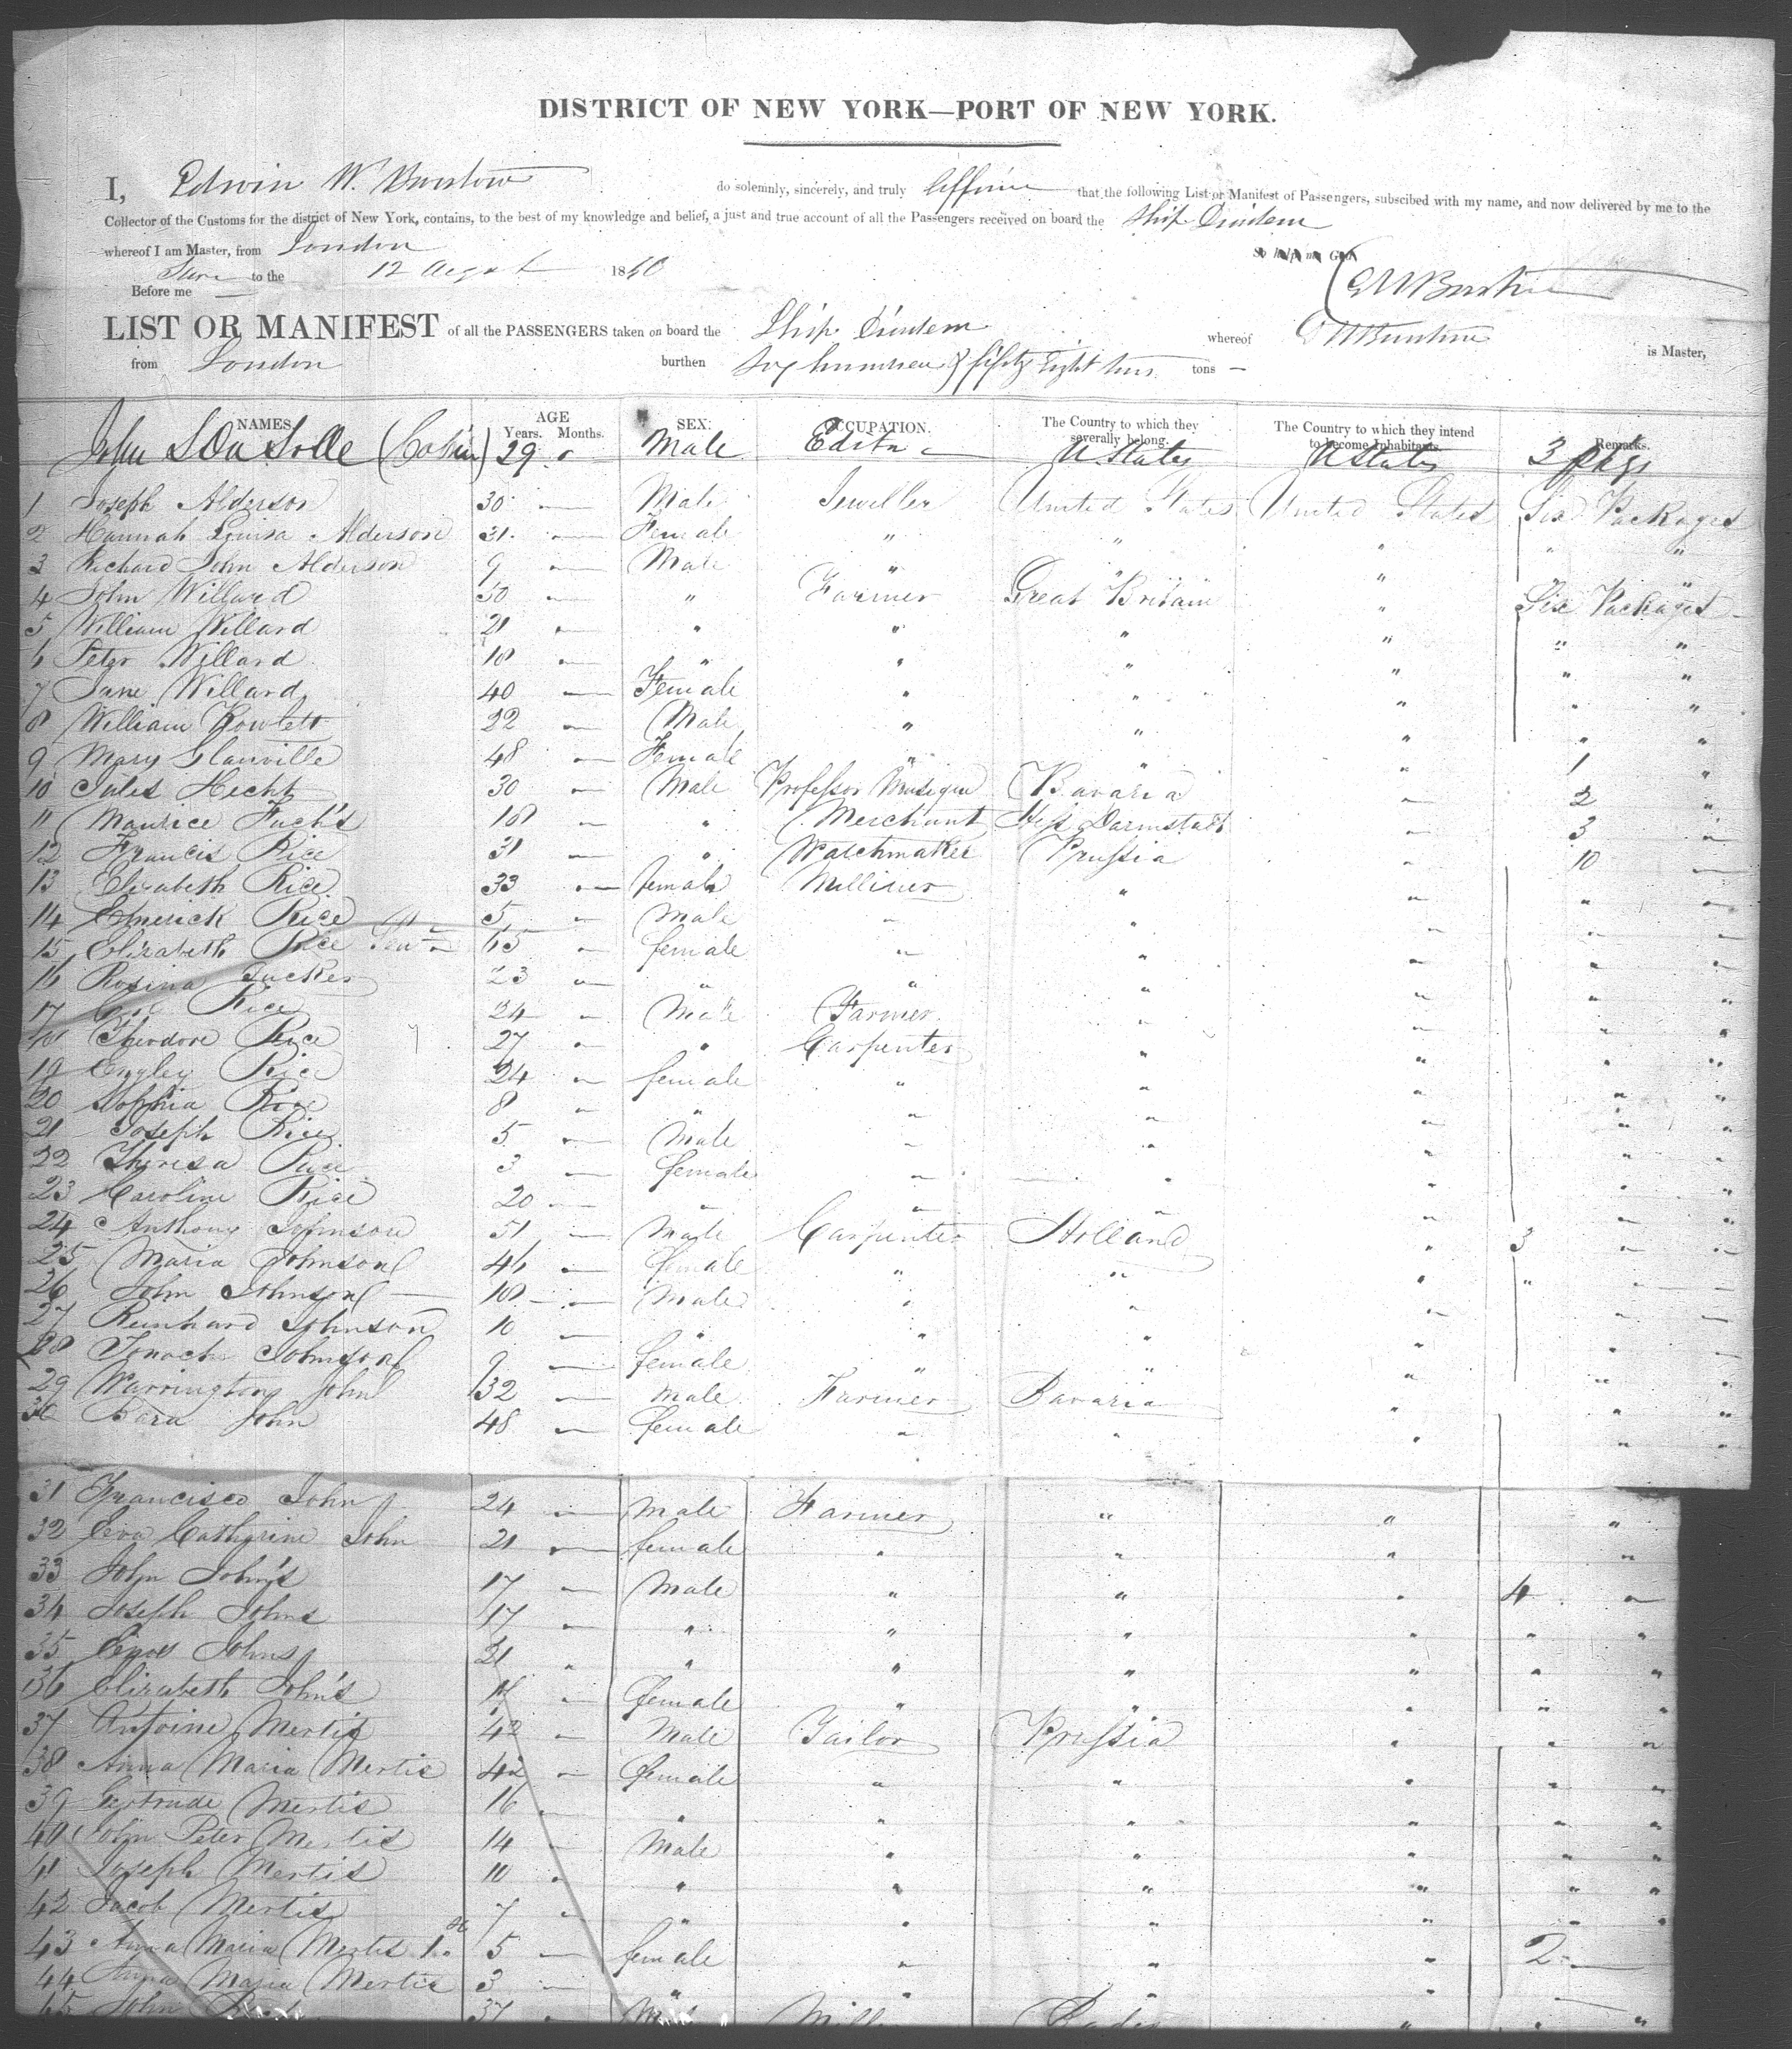 DISTRICT OF NEW YORK—PORT OF NEW YORK.
I, Edwin W. do solemnly, sincerely, and truly affirm that the following List or Manifest of Passengers, subscibed with my name, and now delivered by me to the
Collector of the Customs for the district of New York, contains, to the best of my knowledge and belief, a just and true account of all the Passengers received on board the Ship
whereof I am Master, from London
So help me God.
to the 12 1840
Before me
LIST OR MANIFEST of all the PASSENGERS taken on board the Ship whereof is Master,
from London burthen & fifty Eight tons
NAMES. AGE Years. Months. SEX. OCCUPATION. The Country to which they severally belong. The Country to which they intend to become Inhabitants. Remarks.
John S Du Solle (Cabin) 29 Male Editor U. States U States 3 pkgs
1 Joseph Alderson 30 — Male Jeweller United States United States Six Packages
2 Hannah Louisa Alderson 31 — Female " " " " "
3 Richard John Alderson 9 — Male " " " " "
4 John Willard 50 — " Farmer Great Britain " Six Packages
5 William Willard 21 — " " " " " "
6 Peter Willard 18 — " " " " " "
7 Jane Willard 40 — Female " " " " "
8 William Howlett 22 — Male " " " " "
9 Mary Glanville 48 — Female " " " 1 "
10 Jules Hecht 30 — Male Professor Musique Bavaria " 2 "
11 Maurice Fuchs 18 — " Merchant Hess Darmstadt " 3 "
12 Francis Rice 31 — " Watchmaker Prussia " 10 "
13 Elizabeth Rice 33 — female Milliner " " " "
14 Emerick Rice 5 — Male " " " " "
15 Elizabeth Rice — female " " " " "
16 Rosina Tucker 23 — " " " " " "
17 Rice 24 — Male Farmer " " " "
18 Theodore Rice 27 — " Carpenter " " " "
19 Rice 24 — female " " " " "
20 Sophia Rice 8 — " " " " " "
21 Joseph Rice 5 — Male " " " " "
22 Theresa Rice 3 — female " " " " "
23 Caroline Rice 20 — " " " " " "
24 Anthony Johnson 51 — Male Carpenter Holland " 3 " "
25 Maria Johnson 46 — female " " " " "
26 John Johnson 18 — Male " " " " "
27 Reinhard Johnson 10 — " " " " " "
28 Johnson 9 — female " " " " "
29 Warrington John 32 — Male Farmer Bavaria " " "
30 John 48 — female " " " " "
31 Francisco John 24 — Male Farmer " " "
32 Eva Cathyrine John 21 — female " " " "
33 John John's 17 — Male " " " 4 "
34 Joseph Johns 17 — " " " " " "
35 Johns 21 — " " " " " "
36 Elizabeth John's — female " " " " "
37 Antoine Mertis 42 — Male Tailor Prussia " " "
38 Anna Maria Mertis 42 — female " " " " "
39 Gertrude Mertis 16 — " " " " " "
40 John Peter Mertis 14 — Male " " " " "
41 Joseph Mertis 10 — " " " " " "
42 Jacob Mertis 7 — " " " " " "
43 Anna Maria Mertis 1st 5 — female " " " 2 —
44 Anna Maria Mertis 3 — " " " "
45 John 37 "